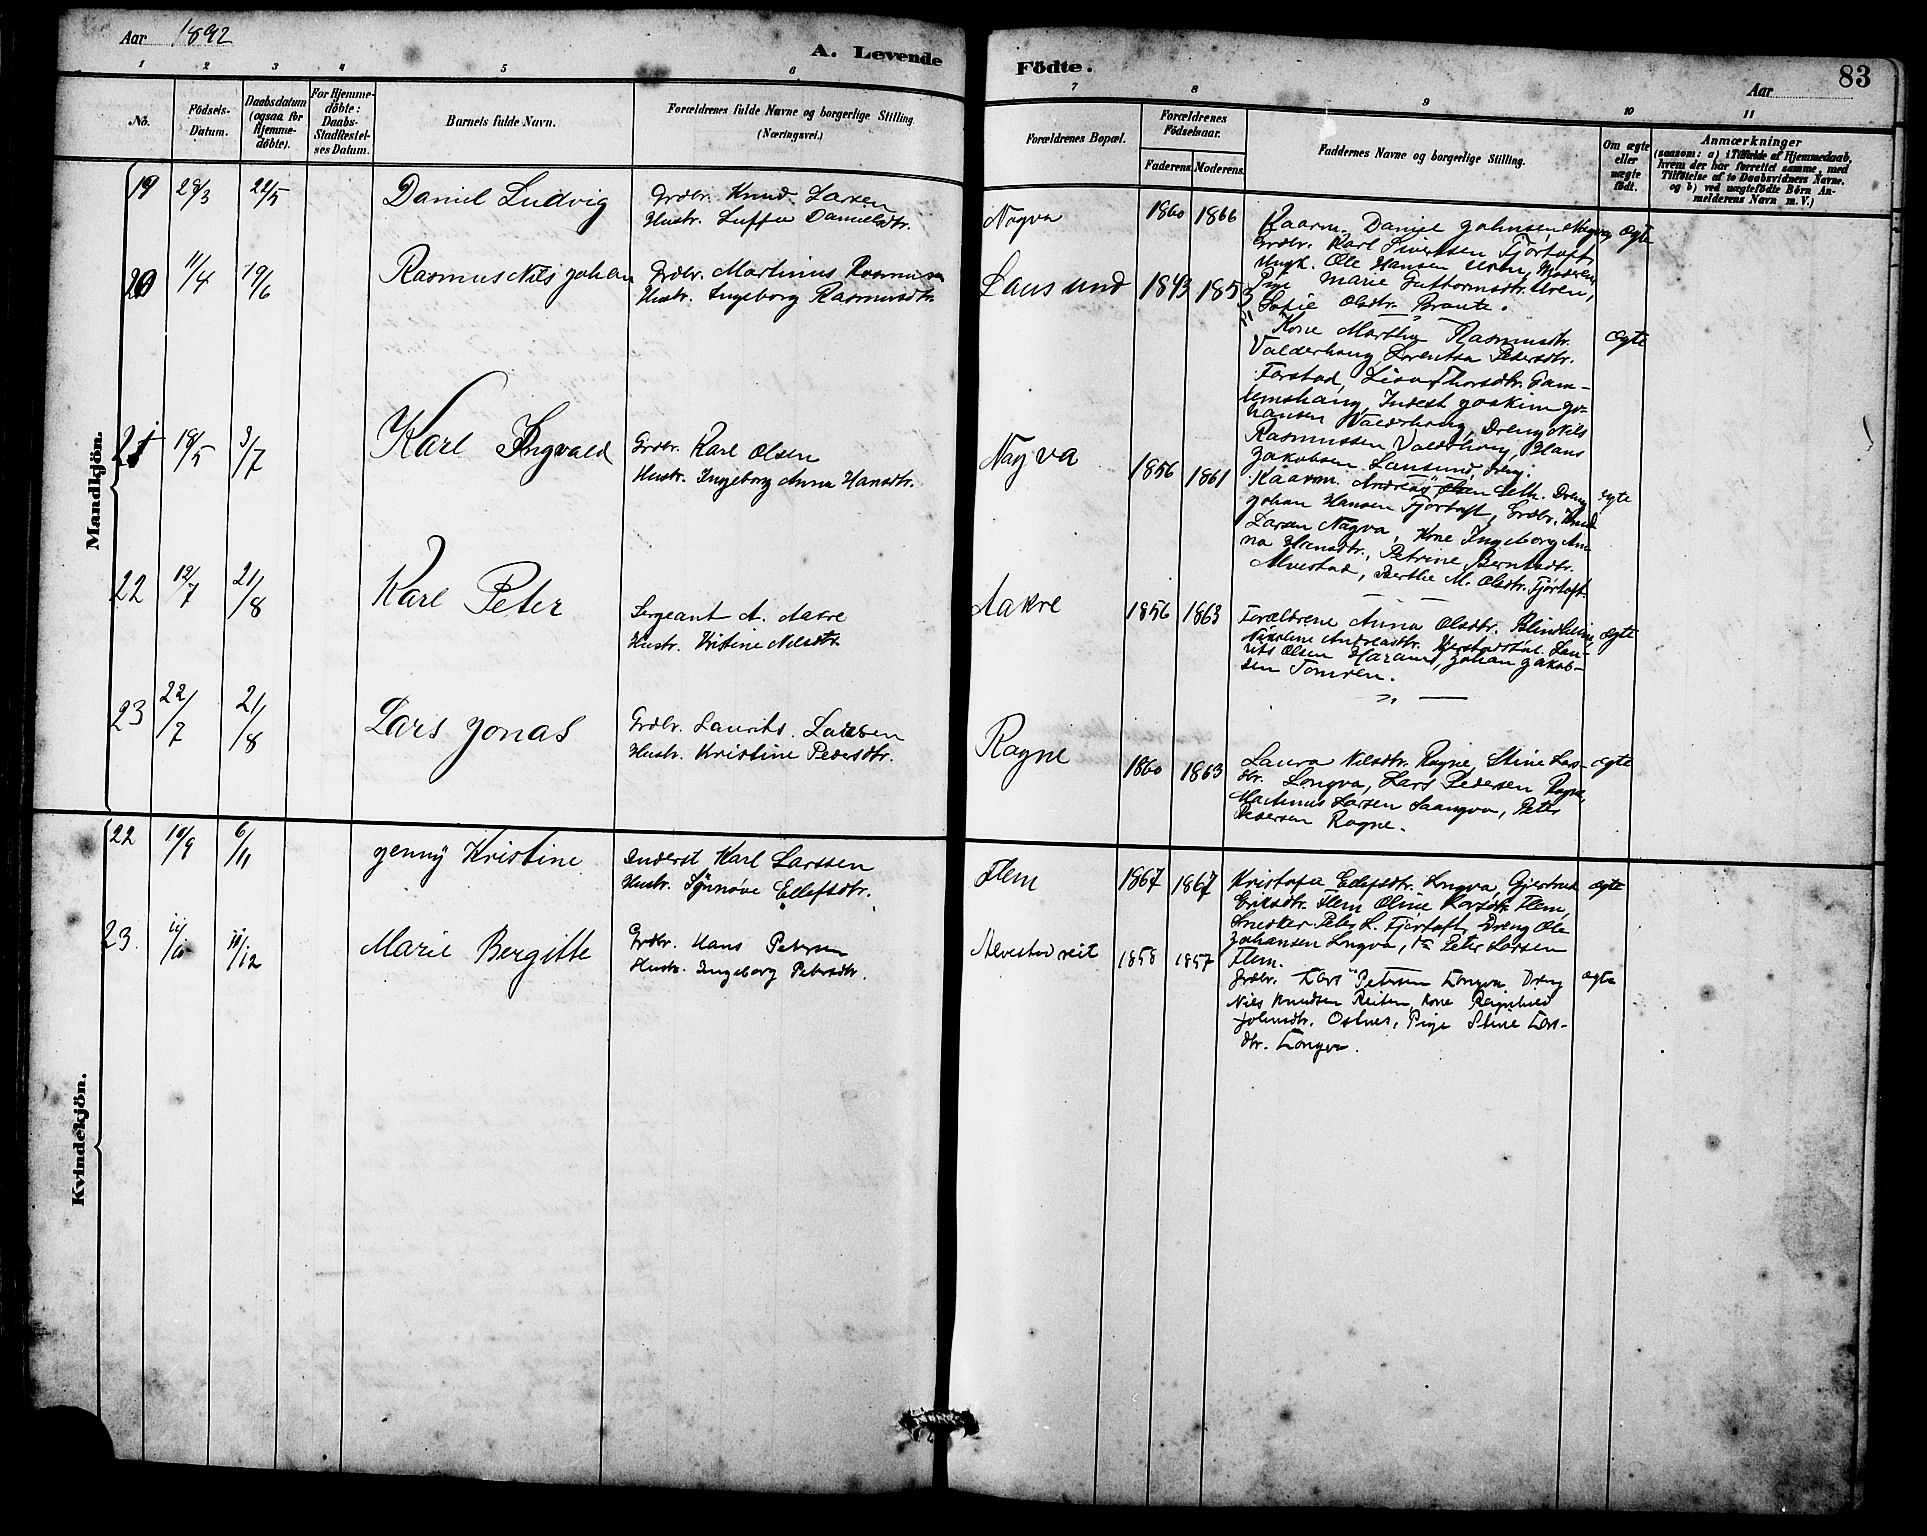 Aar 1892
A. Levende
Födte.
Aar
83
1 2 3 4 5 6 7 8 9 10 11
No.
Födsels-
Datum.
Daabsdatum
(ogsaa for
Hjemme-
döbte).
For Hjemme-
döbte:
Daabs-
Stadfæstel-
ses Datum.
Barnets fulde Navn.
Forældrenes fulde Navne og borgerlige Stilling
(Næringsvei.)
Forældrenes Bopæl.
Forældrenes
Födselsaar.
Faderens. Moderens.
Faddernes Navne og borgerlige Stilling.
Om ægte
eller
uægte
födt.
Anmærkninger
(saasom: a) i Tilfælde af Hjemmedaab,
hvem der har forrettet samme, med
Tilföielse af to Daabsvidners Navne.
og b) ved uægtefödte Börn An-
melderens Navn m. V.)
Mandkjön.
19 28/3 22/5 Daniel Ludvig
Grdbr. Knud Larsen
Hustr. Luffea Danielsdtr.
Nogva 1860 1866
Kaarm. Daniel Johnsen Nogva
Grdbr. Karl Sivertsen Fjörtoft,
Ungk. Ole Hansen Uren, Moderen,
Pige Marie Guttormsdtr. Uren,
Sofie Olsdtr. Braute.
ægte
20 11/4 19/6 Rasmus Nils Johan
Grdbr. Martinus Rasmussen
Hustr. Ingeborg Rasmusdtr.
Lausund 1843 1853
Kone Marthe Rasmusdtr.
Valderhaug, Lorentsa Pedersdtr.
Farstad, Lisa Thorsdtr. Gam-
lemshaug, Inderst Joakim Jo-
hansen Valderhaug, Dreng Nils
Rasmussen Valderhaug, Hans
Jakobsen Lausund, Dreng.
ægte
21 18/5 3/7 Karl Ingvald
Grdbr. Karl Olsen
Hustr. Ingeborg Anna Hansdtr.
Nogva 1856 1861
Kaarm. Andreas Olsen Dreng
Johan Hansen Fjörtoft, Grdbr. Knud
Larsen Nogva, Kone Ingeborg An-
na Hansdtr., Petrine Berntsdtr.
Alvestad, Berthe M. Olsdtr. Fjörtoft.
ægte
22 12/7 21/8 Karl Peter
Sergeant A. Aakre
Hustr. Kristine Nilsdtr.
Aakre 1856 1863
Forældrene Anna Olsdtr. Blindheim,
Nikoline Andreasdtr. Lau-
rits Olsen Harams, Johan Jakob-
sen Tomren.
ægte
23 22/7 21/8 Lars Jonas
Grdbr. Laurits Larsen
Hustr. Kristine Pedersdtr.
Rogne 1860 1863
Laura Nilsdtr. Rogne, Stine Las-
dtr. Longva, Lars Pedersen Rogne,
Martinus Larsen Saangva, Peter
Pedersen Rogne.
ægte
Kvindekjön.
22 19/9 6/11 Jenny Kristine
Inderst Karl Larssen
Hustr. Synnöve Ellefsdtr.
Flem 1867 1867
Kristofa Ellefsdtr. Longva, Gjertrud
Eriksdtr. Flem, Oline Flem,
Snedker Peter L. Fjörtoft, Dreng Ole
Johansen Longva, Peter Larsen
Flem.
ægte
23. 11/10 11/12 Marie Bergitte
Grdbr. Hans Petersen
Hustr. Ingeborg Petersdtr.
Alvestadreit 1858 1857
Grdbr. Lars Petersen Longva, Dreng
Nils Knudsen Reiten, Kone Ragnhild
Johnsdtr. Ostnes, Pige Stine Lars-
dtr. Longva.
ægte